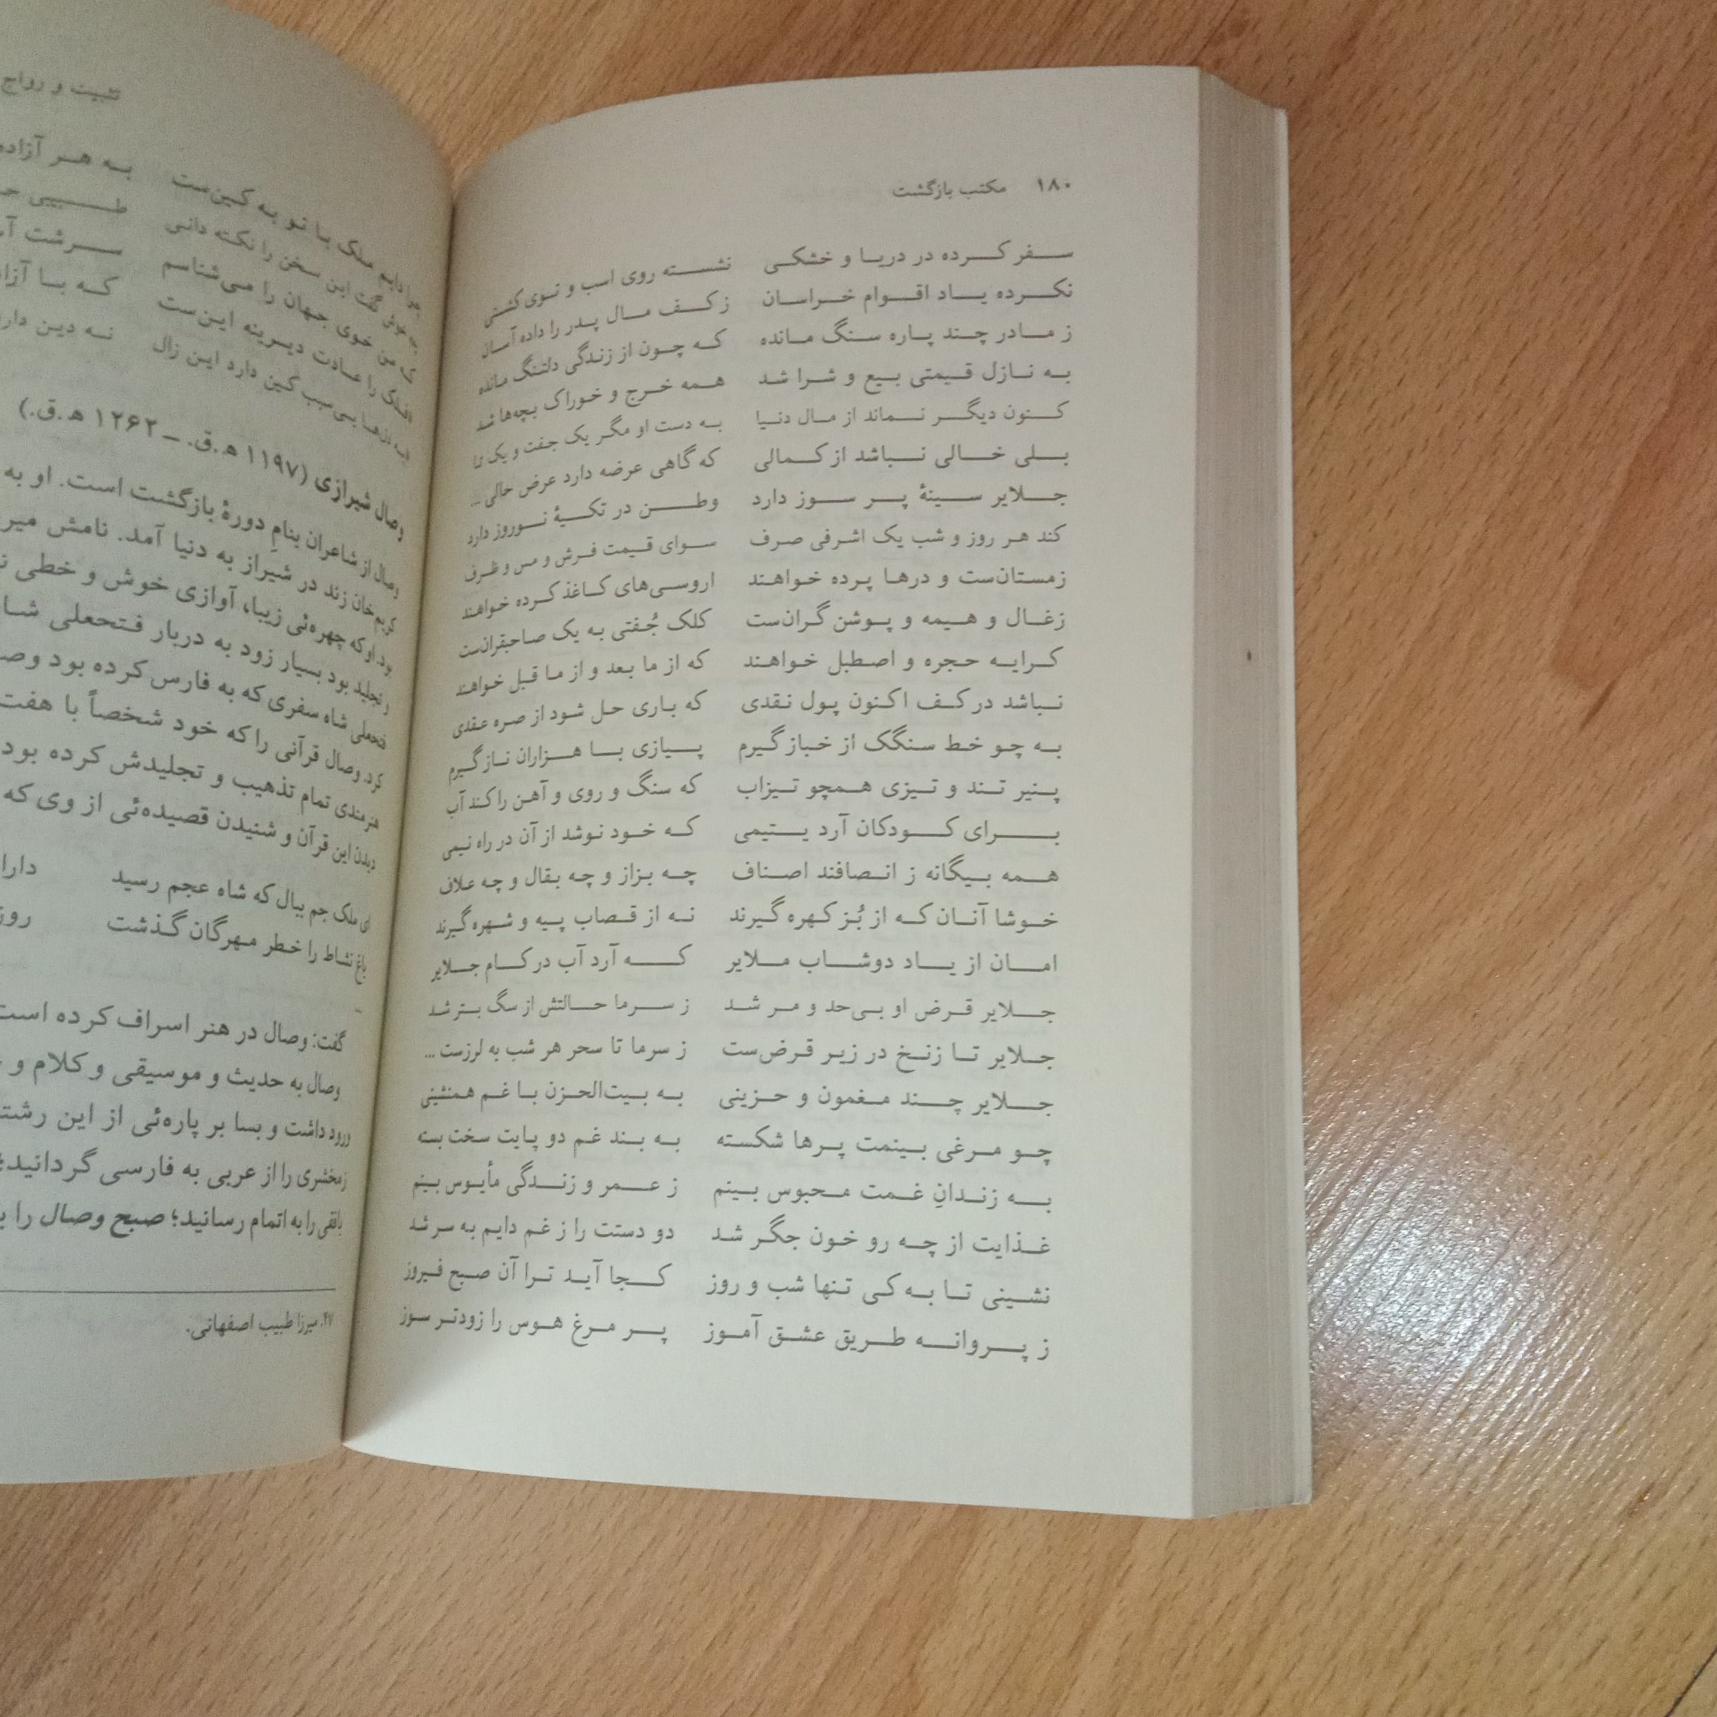 ۱۸۰ مکتب بازگشت
سفر کرده در دریا و خشکی نشسته روی اسب و توی کشتی
نکرده یاد اقوام خراسان ز کف مال پدر را داده آسان
ز مادر چند پاره سنگ مانده که چون از زندگی دلتنگ مانده
به نازل قیمتی بیع و شرا شد همه خرج و خوراک بچه‌ها شد
کنون دیگر نماند از مال دنیا به دست او مگر یک جفت و یک تا
بلی خالی نباشد از کمالی که گاهی عرضه دارد عرض حالی ...
جلایر سینهٔ پر سوز دارد وطن در تکیهٔ نوروز دارد
کند هر روز و شب یک اشرفی صرف سوای قیمت فرش و مس و ظرف
زمستان‌ست و درها پرده خواهند اروسی‌های کاغذ کرده خواهند
زغال و هیمه و پوشن گران‌ست کلک جُفتی به یک صاحبقران‌ست
کرایه حجره و اصطبل خواهند که از ما بعد و از ما قبل خواهند
نباشد در کف اکنون پول نقدی که باری حل شود از صره عقدی
به چو خط سنگک از خباز گیرم پیازی با هزاران ناز گیرم
پنیر تند و تیزی همچو تیزاب که سنگ و روی و آهن را کند آب
برای کودکان آرد یتیمی که خود نوشد از آن در راه نیمی
همه بیگانه ز انصافند اصناف چه بزاز و چه بقال و چه علاف
خوشا آنان که از بُز کهره گیرند نه از قصاب پیه و شهره گیرند
امان از یاد دوشاب ملایر که آرد آب در کام جلایر
جلایر قرض او بی‌حد و مر شد ز سرما حالتش از سگ بتر شد
جلایر تا زنخ در زیر قرض‌ست ز سرما تا سحر هر شب به لرزست ...
جلایر چند مغمون و حزینی به بیت‌الحزن با غم همنشینی
چو مرغی بینمت پرها شکسته به بند غم دو پایت سخت بسته
به زندانِ غمت محبوس بینم ز عمر و زندگی مأیوس بینم
غذایت از چه رو خون جگر شد دو دستت را ز غم دایم به سر شد
نشینی تا به کی تنها شب و روز کجا آید ترا آن صبح فیروز
ز پروانه طریق عشق آموز پر مرغ هوس را زودتر سوز
تثبیت و رواج
چرا دایم ملک با تو به کین‌ست به هر آزاده
چه خوش گفت این سخن را نکته دانی طبیبی
که من خوی جهان را می‌شناسم سرشت
«فلک را عادت دیرینه این‌ست که با
نه دین دارد به دل‌ها بی‌سبب کین دارد این زال
وصال شیرازی (۱۱۹۷ ه‍.ق. ــ ۱۲۶۲ ه‍.ق.)
وصال از شاعران بنامِ دورهٔ بازگشت است. او به
کریم‌خان زند در شیراز به دنیا آمد. نامش
بود. او که چهره‌ئی زیبا، آوازی خوش و خطی
و تجلید بود بسیار زود به دربار فتحعلی
فتحعلی شاه سفری که به فارس کرده بود
کرد. وصال قرآنی را که خود شخصاً با هفت
هنرمندی تمام تذهیب و تجلیدش کرده بود
دیدن این قرآن و شنیدن قصیده‌ئی از وی که
ای ملک جم ببال که شاه عجم رسید
باغ نشاط را خطر مهرگان گذشت
گفت: وصال در هنر اسراف کرده است
وصال به حدیث و موسیقی و کلام و
ورود داشت و بسا بر پاره‌ئی از این
زمخشری را از عربی به فارسی گردانید؛
بافقی را به اتمام رسانید؛ صبح وصال را
۴۷. میرزا طبیب اصفهانی.